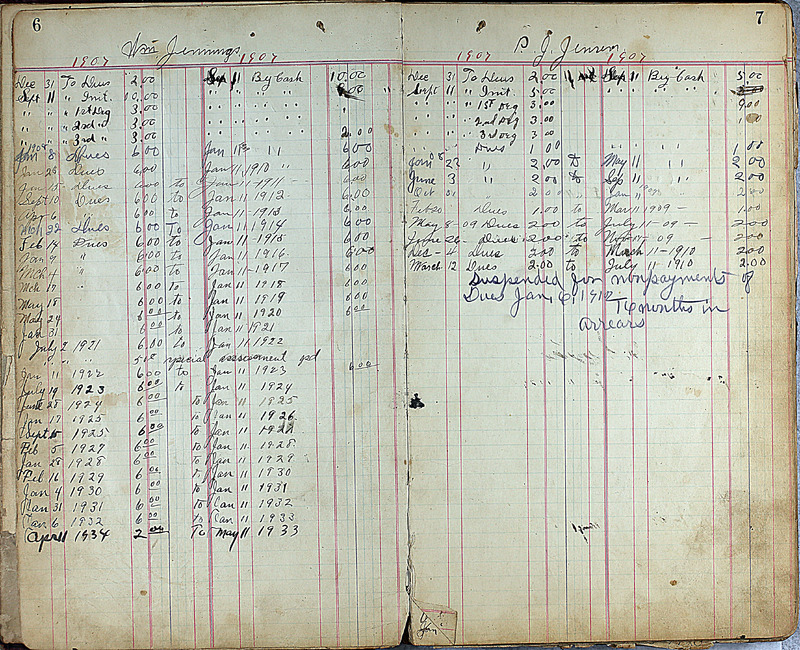 6
Wm Jennings
1907 1907
Dec 31 To Dues 2.00 Sep 11 By Cash 10.00
Sept 11 " Init. 10.00 " " " "
" " " 1st Deg 3.00 " " " "
" " " 2nd " 3.00 " " " "
" " " 3rd " 3.00 " " " " 2.00
1908 Jan 8 Dues 6.00 Jan 11 " 11 6.00
Dues 6.00 Jan 11, 1910 " 6.00
Jan 15 Dues 6.00 to Jan 11 1911 6.00
Sept 10 Dues 6.00 to Jan 11 1912 6.00
Apr 6 6.00 to Jan 11 1913 6.00
22 Dues 6.00 To Jan 11 1914 6.00
Feb 14 Dues 6.00 to Jan 11 1915 6.00
Jan 9 " 6.00 to Jan 11 1916 6.00
Mch 4 " 6.00 to Jan 11 1917 6.00
Mch 17 6.00 to Jan 11 1918 6.00
May 15 6.00 to Jan 11 1919 6.00
May 24 6.00 to Jan 11 1920 6.00
Jan 31 6.00 to Jan 11 1921
July 2 1921 6.00 to Jan 11 1922
special assessment pd
Jan 11 1922 6.00 to Jan 11 1923 6.00
July 19 1923 6.00 to Jan 11 1924
June 28 1924 6.00 to Jan 11 1925
Jan 17 1925 6.00 to Jan 11 1926
Sept 15 1925 6.00 to Jan 11 1927
Feb 5 1927 6.00 to Jan 11 1928
Jan 28 1928 6.00 to Jan 11 1929
Feb 16 1929 6.00 to Jan 11 1930
Jan 4 1930 6.00 to Jan 11 1931
Jan 31 1931 6.00 to Jan 11 1932
Jan 6 1932 6.00 to Jan 11 1933
April 1934 2.00 To May 11 1933
7
P. J. Jensen
1907 1907
Dec 31 To Dues 2.00 Sep 11 By Cash 5.00
Sept 11 " Init. 5.00 " " "
" " " 1st Deg 3.00 " " " " 9.00
" " 2nd Deg 3.00 " " " 1.00
" " 3rd Deg 3.00
Dues 1.00 " " " " 1.00
Jan 08 22 " 2.00 to May 11 " 2.00
June 3 " 2.00 to Sep 11 " 2.00
Oct 31 2.00 " Jan " 1909 " 2.00
Feb 20 Dues 1.00 to Mar 11 1909 - 1.00
May 8 - 09 Dues 2.00 to July 11 - 09 - 2.00
June 26 Dues 2.00 to Nov 11 - 09 2.00
Dec - 4 Dues 2.00 to March 11 - 1910 2.00
March 12 Dues 2.00 to July 11 1910 2.00
Suspended for nonpayments of
Dues Jan, 6, 1912
months in
arrears